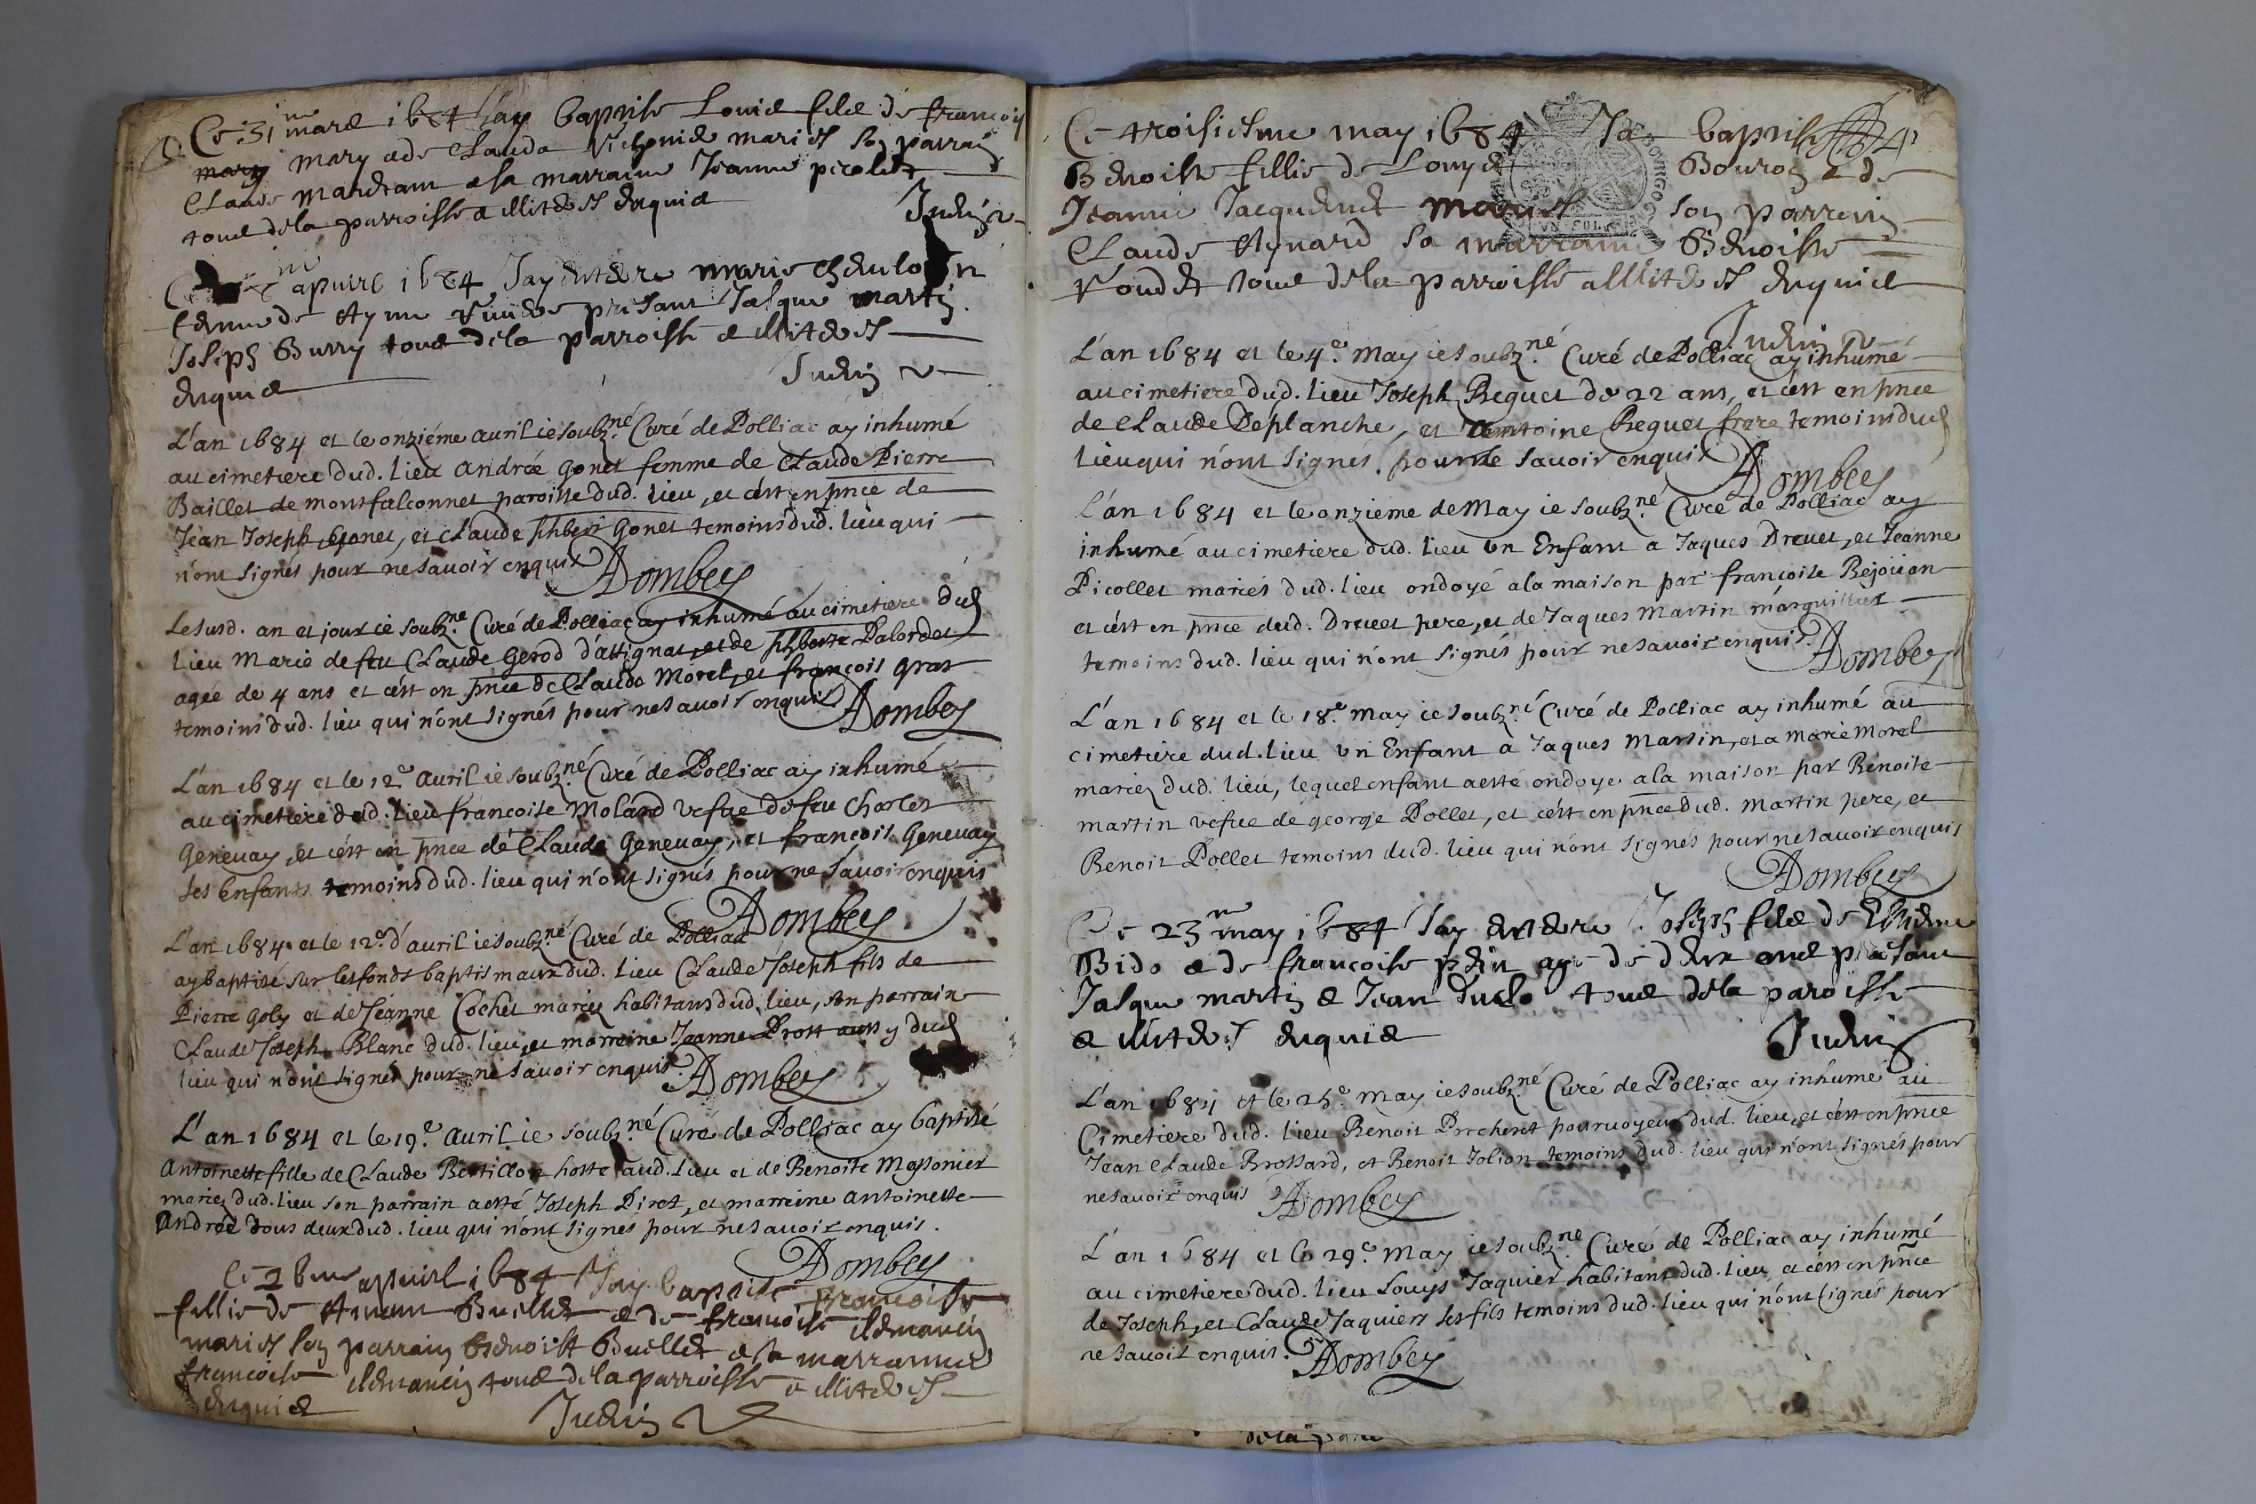 Ce 31me mars 1684 Jay baptise Louis fils de francois
mary mary et de Clauda mariés son parrain
Claude a sa marraine Jeanne picolet
tous de la parroisse et illiterés enquis
Judin
apvril 1684 Jay enterre marie
femme de Ayme presant Jasque martin
Joseph Burry tous de la parroisse et illiterés
enquis Judin
L'an 1684 et le onziéme auril ie soubz.né Curé de Polliac ay inhumé
au cimetiere dud. lieu Andrée gonet femme de Claude Pierre
Baillet de montfalconnet paroisse dud. lieu, et c'est en pnce de
Jean Joseph gonet, et Claude phbert gonet temoins dud. lieu qui
n'ont signés pour ne savoir enquis
ADombey
Le susd. an et jour ie soubz.né Curé de Polliac ay inhumé au cimetiere dud
lieu Marie de feu Claude Gerod d'attignat, et de phberte Palordet
agée de 4 ans et c'est en pnce de Claude Morel, et françois gras
temoins dud. lieu qui n'ont signés pour ne savoir enquis
ADombey
L'an 1684 et le 12e auril ie soubz.né Curé de Polliac ay inhumé
au cimetiere dud. lieu francoise Moland vefue de feu Charles
Geneuay, et c'est en pnce de Claude Geneuay, et francois Geneuay
ses Enfants temoins dud. lieu qui n'ont signés pour ne savoir enquis
ADombey
L'an 1684 et le 12e d'auril ie soubz.né Curé de Polliac
ay baptizé sur les fonds baptismaux dud. lieu Claude Joseph fils de
Pierre Goly et de Jeanne Cochet mariez habitans dud. lieu, son parrain
Claude Joseph Blanc dud. lieu, et marreine Jeanne Prost aussy dud
lieu qui n'ont signés pour ne savoir enquis
ADombey
L'an 1684 et le 19e auril ie soubz.né Curé de Polliac ay baptisé
Antoinette fille de Claude Bertillon hoste aud. lieu et de Benoite Massonier
mariez dud. lieu son parrain a esté Joseph Piret, et marreine antoinette
Andrée tous deux dud. lieu qui n'ont signés pour ne savoir enquis.
ADombey
apvril 1684 Jay baptise francoise
fillie de Buellet et de francoise
mariés son parrain Benoist Buellet et sa marranne
francoise tous de la parroisse et illiterés
enquis Judin
Ce troisiesme may 1684 Ja baptise
Benoiste fillie de Louys Bouron et de
Jeanne Jacquenet mariés son parrain
Claude Aynard sa marraine Benoiste
tous de la parroisse et illiterés enquis
Judin
L'an 1684 et le 4e. May ie soubz.né Curé de Polliac ay inhumé
au cimetiere dud. lieu Joseph Reguet de 22 ans, et c'est en pnce
de Claude Déplanche, et Antoine Reguet frere temoins dud
lieu qui n'ont signés. pour ne savoir enquis
ADombey
L'an 1684 et le onzieme de May ie soubz.né Curé de Polliac ay
inhumé au cimetiere dud. lieu un Enfant a Jaques Dreuet, et Jeanne
Picollet mariés dud. lieu ondoyé a la maison par françoise Rejouan
et c'est en pnce dud. Dreuet pere, et de Jaques Martin marguillier
temoins dud. lieu qui n'ont signés pour ne savoir enquis.
ADombey
L'an 1684 et le 18e. May ie soubz.né Curé de Polliac ay inhumé au
cimetiere dud. lieu un Enfant a Jaques Martin, et a Marie Morel
mariez dud. lieu, lequel enfant a esté ondoyé a la maison par Benoite
martin vefue de george Pollet, et c'est en pnce dud. Martin pere, et
Benoit Pollet temoins dud. lieu qui n'ont signés pour ne savoir enquis
ADombey
Ce 23me may 1684 Jay enterre Joseph fils de
Bido et de francoise age de deux ans presant
Jasque martin et Jean tous de la paroisse
et illiterés enquis Judin
L'an 1684 et le 25e. May ie soubz.né Curé de Polliac ay inhumé au
Cimetiere dud. lieu Benoit Procheret pouruoyeur dud. lieu, et c'est en pnce
Jean Claude Brossard, et Benoit Jolion temoins dud. lieu qui n'ont signés pour
ne savoir enquis ADombey
L'an 1684 et le 29e. May ie soubz.né Curé de Polliac ay inhumé
au cimetiere dud. lieu Louys Jaquier habitant dud. lieu, et c'est en pnce
de Joseph, et Claude Jaquiers ses fils temoins dud. lieu qui n'ont signés pour
ne savoir enquis. ADombey